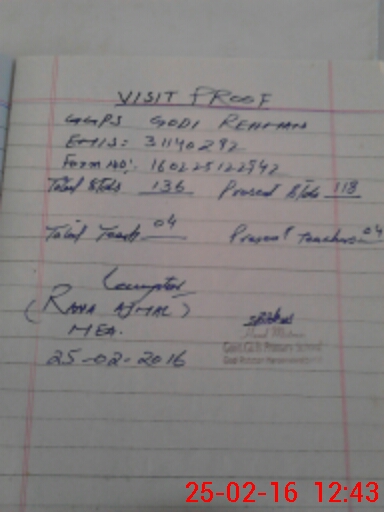 VISIT PROOF
GGPS GODI REHMAN
EMIS: 31140292
Form NO: 160225122942
Total Stds 136 Present Stds 118
Total Teach 04 Present Teachers 04
(RANA AJMAL)
MEA.
25-02-2016
Head Mistress
Govt. Girls Primary School
25-02-16 12:43